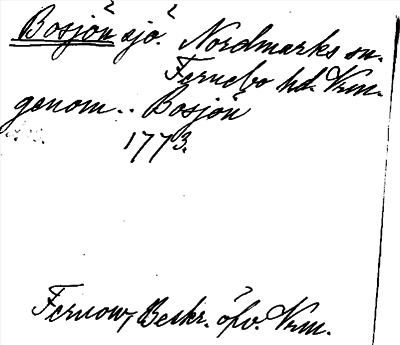 Bosjön sjö. Nordmarks sn.
Fernebo hd. Vrm.
genom .. Bosjön
1773.
Fernow, Beskr. öfv. Vrm.